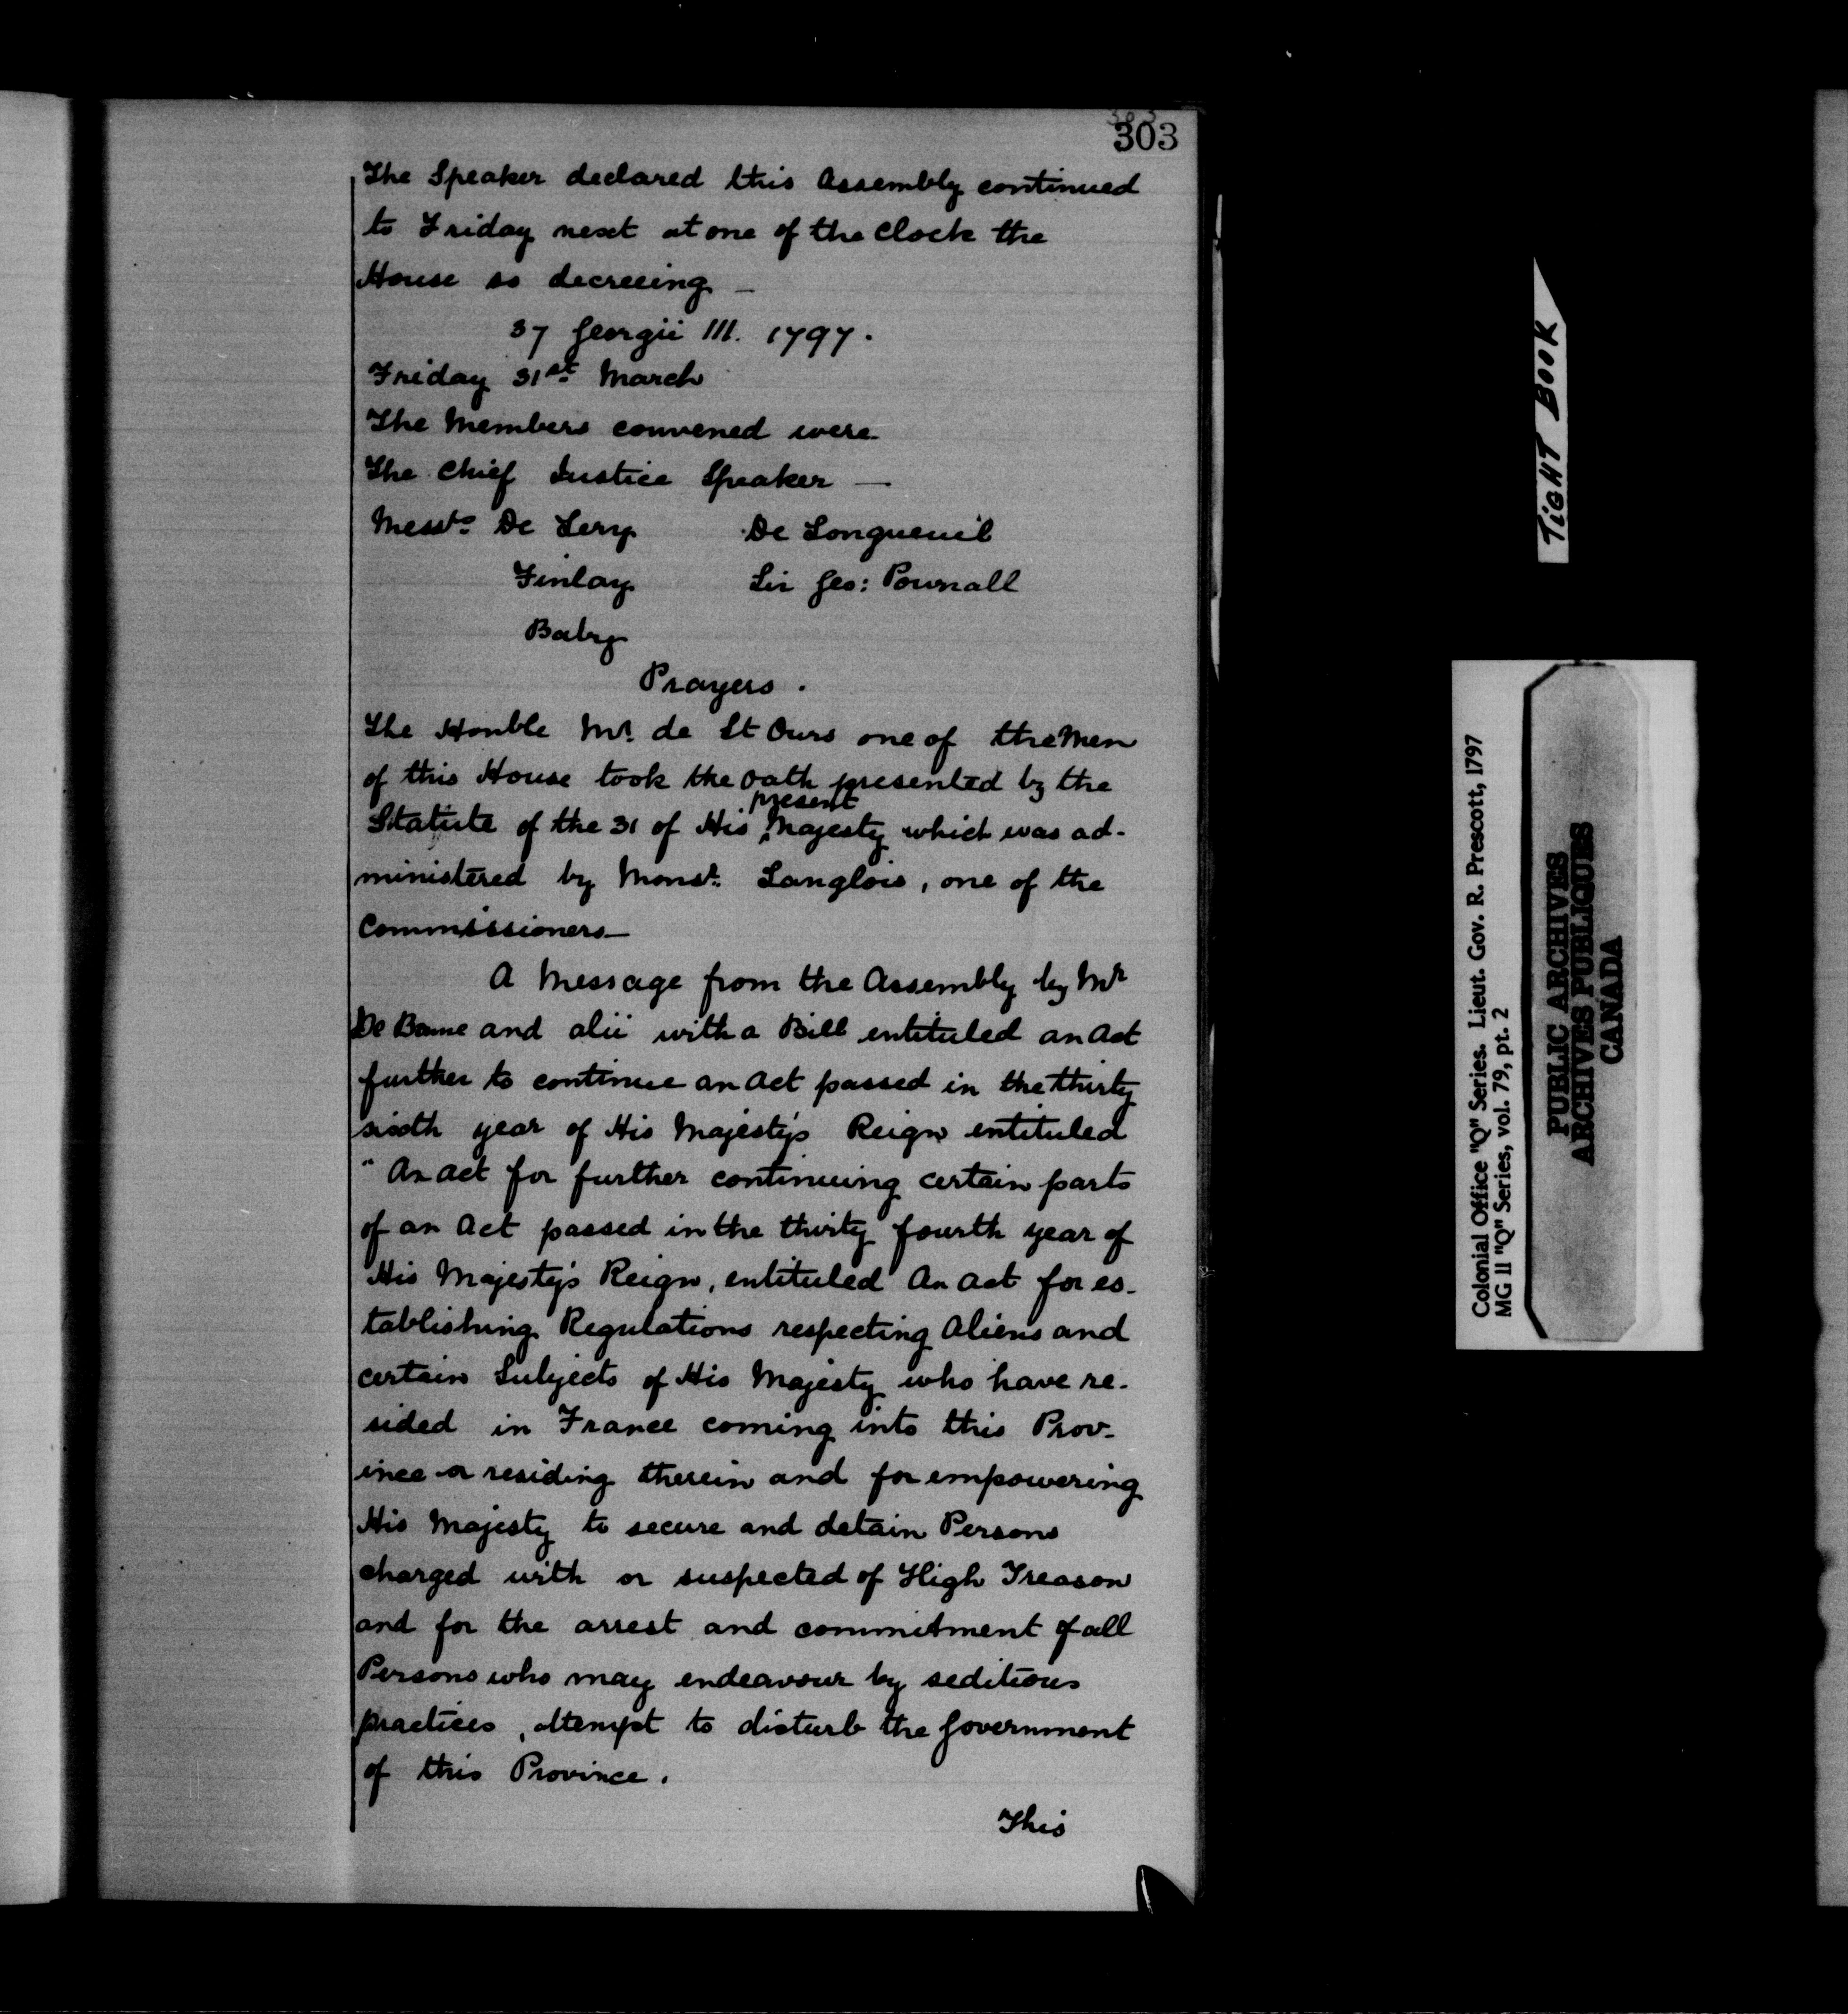 303
303
The Speaker declared this Assembly continued
to Friday next at one of the Clock the
House so decreeing —
37 Georgii III. 1797.
Friday 31st March
The Members convened were
The Chief Justice Speaker —
Messrs De Lery De Longueuil
Finlay Sir Geo: Pownall
Baby
Prayers.
The Honble Mr. de St Ours one of the Mem
of this House took the oath presented by the
present
Statute of the 31 of His ^ Majesty which was ad-
ministered by Monsr. Langlois, one of the
Commissioners—
A Message from the Assembly by Mr
De Bonne and alii with a Bill entituled an Act
further to continue an Act passed in the thirty
sixth year of His Majesty's Reign entituled
" An Act for further continuing certain parts
of an Act passed in the thirty fourth year of
His Majesty's Reign, entituled An Act for es-
tablishing Regulations respecting Aliens and
certain Subjects of His Majesty who have re-
sided in France coming into this Prov-
ince or residing therein and for empowering
His Majesty to secure and detain Persons
charged with or suspected of High Treason
and for the arrest and commitment of all
Persons who may endeavour by seditious
practices, attempt to disturb the Government
of this Province.
This
TIGHT BOOK
Colonial Office "Q" Series. Lieut. Gov. R. Prescott, 1797
MG 11 "Q" Series, vol. 79, pt. 2
PUBLIC ARCHIVES
ARCHIVES PUBLIQUES
CANADA